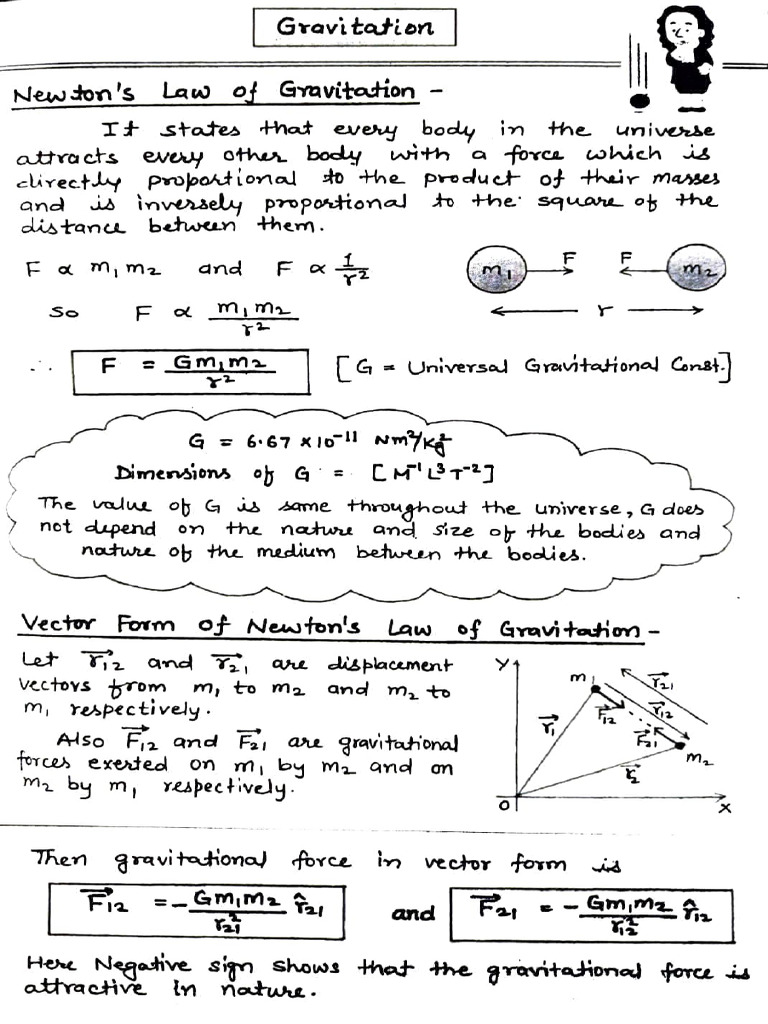 Gravitation
Newton's Law of Gravitation -
It states that every body in the universe
attracts every other body with a force which is
directly proportional to the product of their masses
and is inversely proportional to the square of the
distance between them.
F ∝ m₁m₂ and F ∝ 1/r²
m₁ F F m₂
r
so F ∝ m₁m₂/r²
∴ F = Gm₁m₂/r² [G = Universal Gravitational Const.]
G = 6.67 × 10⁻¹¹ Nm²/Kg²
Dimensions of G = [M⁻¹L³T⁻²]
The value of G is same throughout the universe, G does
not depend on the nature and size of the bodies and
nature of the medium between the bodies.
Vector Form of Newton's Law of Gravitation -
Let r⃗₁₂ and r⃗₂₁ are displacement
vectors from m₁ to m₂ and m₂ to
m₁ respectively.
Also F⃗₁₂ and F⃗₂₁ are gravitational
forces exerted on m₁ by m₂ and on
m₂ by m₁ respectively.
Y
m₁ r⃗₂₁
r⃗₁ F⃗₁₂ r⃗₁₂
F⃗₂₁
m₂
r⃗₂
O X
Then gravitational force in vector form is
F⃗₁₂ = -Gm₁m₂/r₂₁² r̂₂₁ and F⃗₂₁ = -Gm₁m₂/r₁₂² r̂₁₂
Here Negative sign shows that the gravitational force is
attractive in nature.